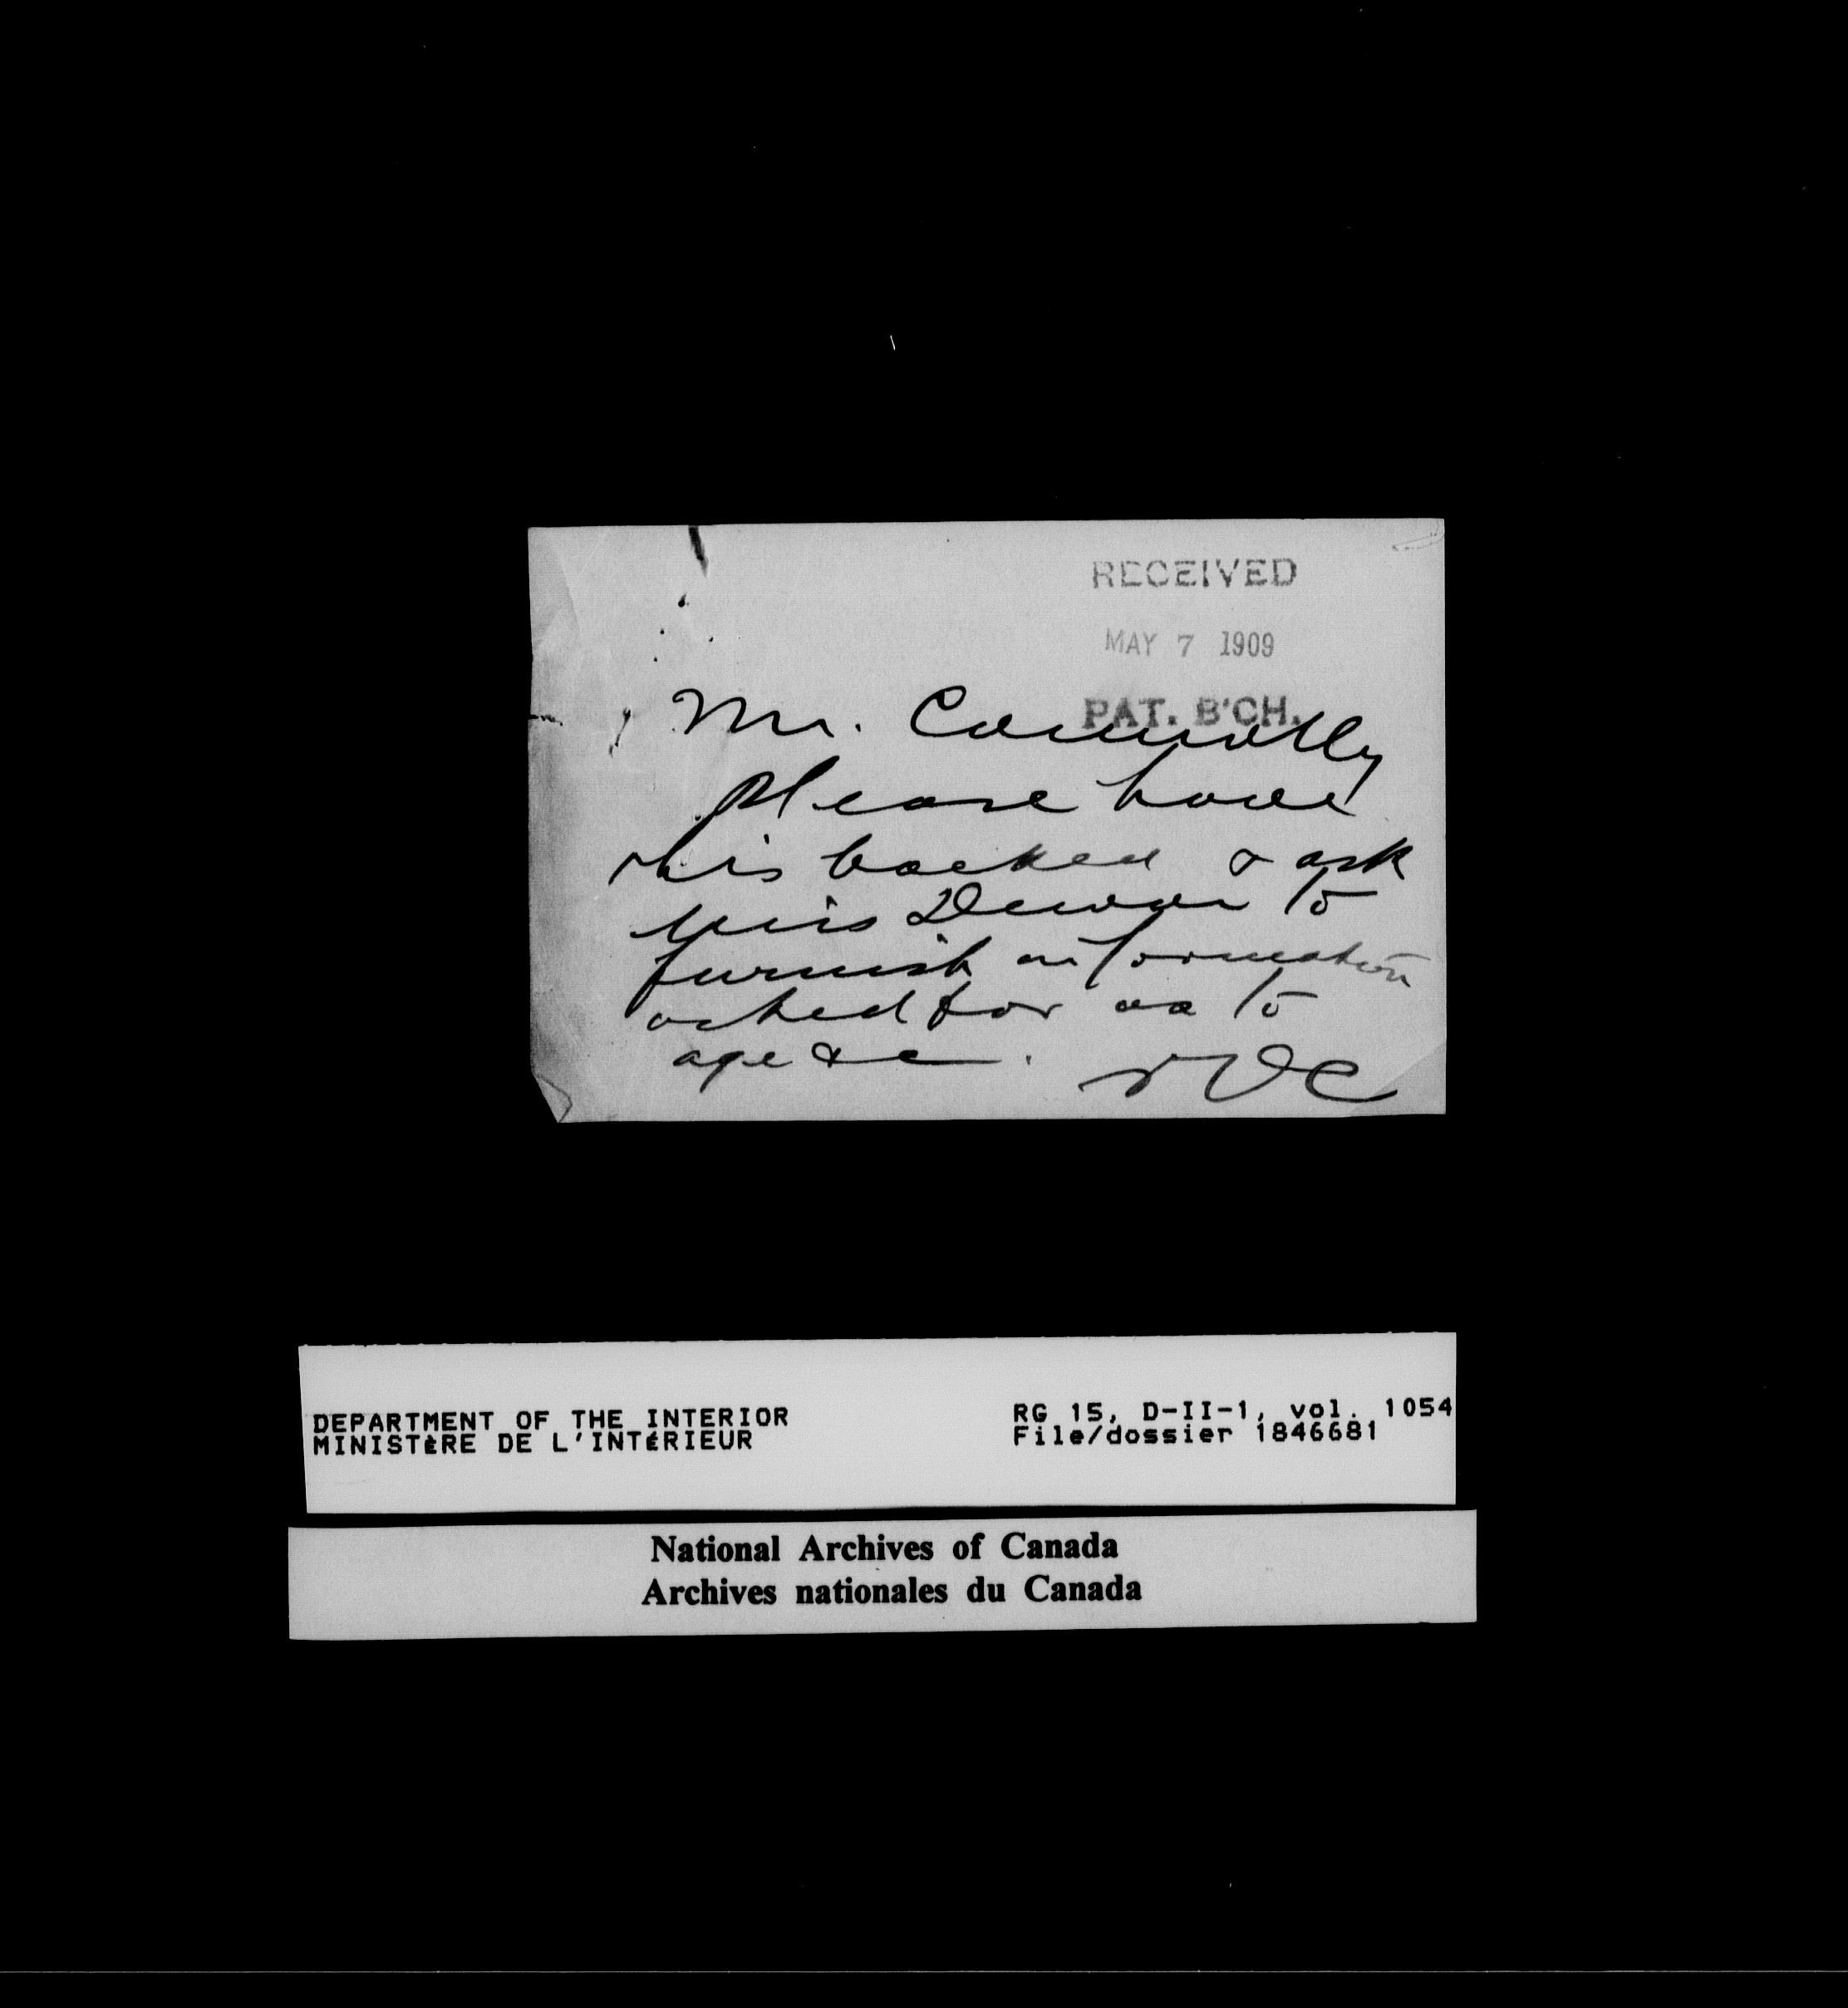 RECEIVED
MAY 7 1909
PAT. B'CH.
Mr. Connolly
Please have
this backed & ask
Miss Dewar to
furnish information
asked for as to
age &c.
NOC
DEPARTMENT OF THE INTERIOR
MINISTÈRE DE L'INTÉRIEUR
RG 15, D-II-1, vol. 1054
File/dossier 1846681
National Archives of Canada
Archives nationales du Canada